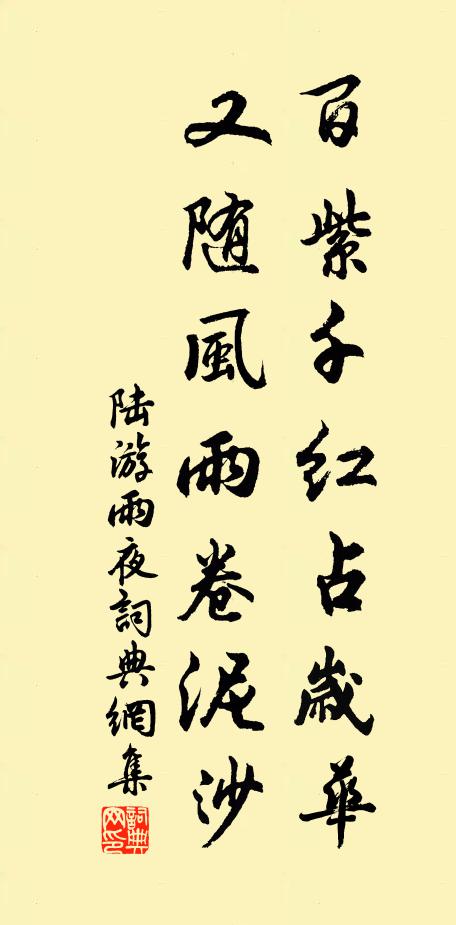 百紫千红占歲華
又随風雨卷泥沙
陆游雨夜詞典網集
詞典网印